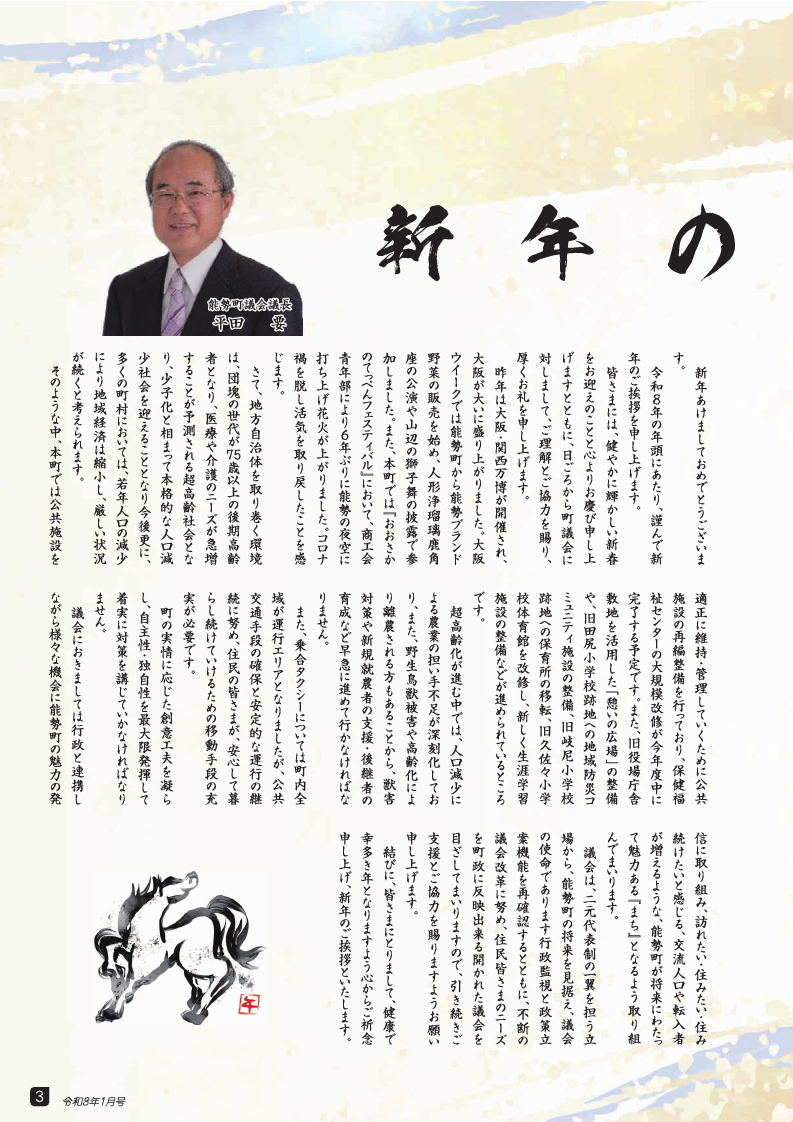 新年の
能勢町議会議長
平田　要
　新年あけましておめでとうございま
す。
　令和８年の年頭にあたり、謹んで新
年のご挨拶を申し上げます。
　皆さまには、健やかに輝かしい新春
をお迎えのことと心よりお慶び申し上
げますとともに、日ごろから町議会に
対しまして、ご理解とご協力を賜り、
厚くお礼を申し上げます。
　昨年は大阪・関西万博が開催され、
大阪が大いに盛り上がりました。大阪
ウイークでは能勢町から能勢ブランド
野菜の販売を始め、人形浄瑠璃鹿角
座の公演や山辺の獅子舞の披露で参
加しました。また、本町では『おおさか
のてっぺんフェスティバル』において、商工会
青年部により６年ぶりに能勢の夜空に
打ち上げ花火が上がりました。コロナ
禍を脱し活気を取り戻したことを感
じます。
　さて、地方自治体を取り巻く環境
は、団塊の世代が75歳以上の後期高齢
者となり、医療や介護のニーズが急増
することが予測される超高齢社会とな
り、少子化と相まって本格的な人口減
少社会を迎えることとなり今後更に、
多くの町村においては、若年人口の減少
により地域経済は縮小し、厳しい状況
が続くと考えられます。
　そのような中、本町では公共施設を
適正に維持・管理していくために公共
施設の再編整備を行っており、保健福
祉センターの大規模改修が今年度中に
完了する予定です。また、旧役場庁舎
敷地を活用した「憩いの広場」の整備
や、旧田尻小学校跡地への地域防災コ
ミュニティ施設の整備、旧岐尼小学校
跡地への保育所の移転、旧久佐々小学
校体育館を改修し、新しく生涯学習
施設の整備などが進められているところ
です。
　超高齢化が進む中では、人口減少に
よる農業の担い手不足が深刻化してお
り、また、野生鳥獣被害や高齢化によ
り離農される方もあることから、獣害
対策や新規就農者の支援・後継者の
育成など早急に進めて行かなければな
りません。
　また、乗合タクシーについては町内全
域が運行エリアとなりましたが、公共
交通手段の確保と安定的な運行の継
続に努め、住民の皆さまが、安心して暮
らし続けていけるための移動手段の充
実が必要です。
　町の実情に応じた創意工夫を凝ら
し、自主性・独自性を最大限発揮して
着実に対策を講じていかなければなり
ません。
　議会におきましては行政と連携し
ながら様々な機会に能勢町の魅力の発
信に取り組み、訪れたい・住みたい・住み
続けたいと感じる、交流人口や転入者
が増えるような、能勢町が将来にわたっ
て魅力ある『まち』となるよう取り組
んでまいります。
　議会は、二元代表制の一翼を担う立
場から、能勢町の将来を見据え、議会
の使命であります行政監視と政策立
案機能を再確認するとともに、不断の
議会改革に努め、住民皆さまのニーズ
を町政に反映出来る開かれた議会を
目ざしてまいりますので、引き続きご
支援とご協力を賜りますようお願い
申し上げます。
　結びに、皆さまにとりまして、健康で
幸多き年となりますよう心からご祈念
申し上げ、新年のご挨拶といたします。
午
3　令和8年1月号